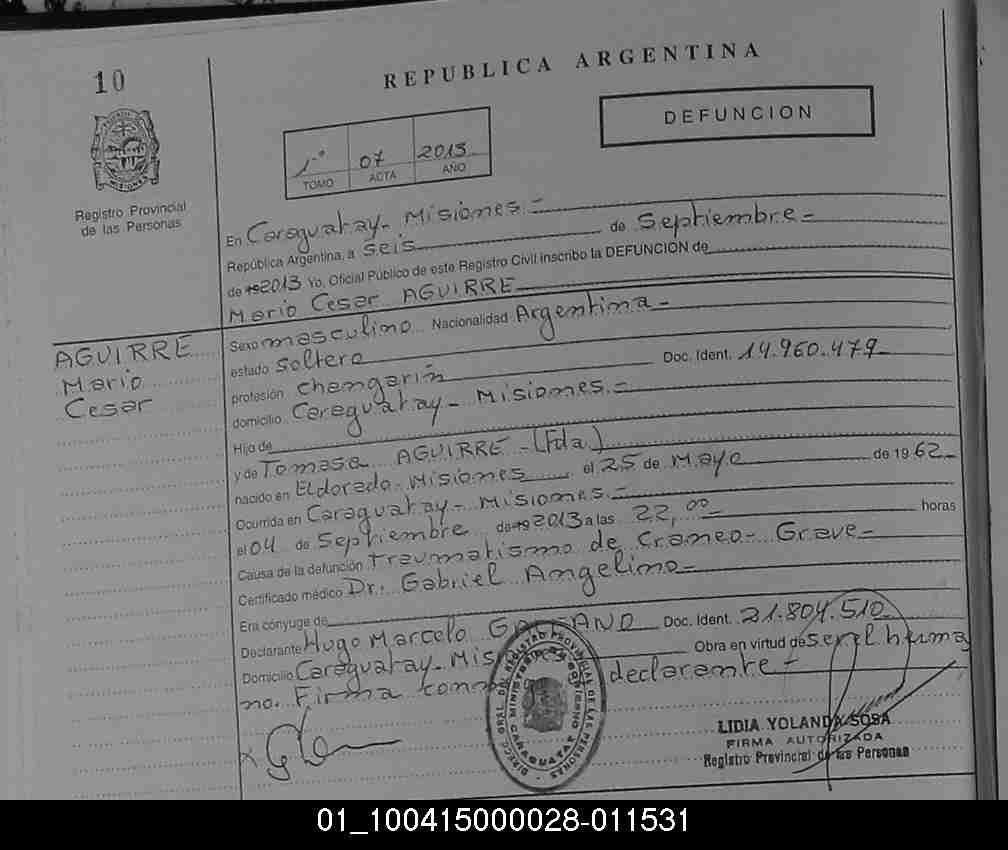 10
REPUBLICA ARGENTINA
DEFUNCION
1º 07 2013
TOMO ACTA AÑO
Registro Provincial
de las Personas
MISIONES
En Caraguatay - Misiones -
República Argentina, a seis de Septiembre -
de 19 2013 Yo, Oficial Público de este Registro Civil inscribo la DEFUNCION de
Mario Cesar AGUIRRE
AGUIRRE
Mario
Cesar
Sexo masculino Nacionalidad Argentina -
estado Soltero
profesión changarin Doc. Ident. 14.960.479
domicilio Caraguatay - Misiones. -
Hijo de
y de Tomasa AGUIRRE - (Fda.)
nacido en Eldorado - Misiones el 25 de Mayo de 19 62 -
Ocurrida en Caraguatay - Misiones. -
el 04 de Septiembre de 19 2013 a las 22,00 horas
Causa de la defunción Traumatismo de Craneo - Grave -
Certificado médico Dr. Gabriel Angelino -
Era cónyuge de
Declarante Hugo Marcelo Doc. Ident. 21.804.510
Domicilio Caraguatay - Mis Obra en virtud de ser el herma
no. Firma declarante -
DIREC. GRAL. DEL REGISTRO PROVINCIAL DE LAS PERSONAS
MINISTERIO DE GOBIERNO
CARAGUATAY
LIDIA YOLANDA SOSA
FIRMA AUTORIZADA
Registro Provincial de las Personas
01_100415000028-011531